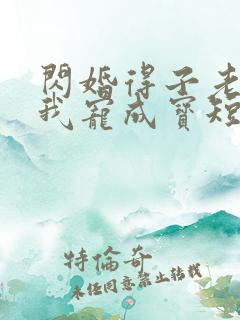 閃婚得子老
我寵成寶短
特倫奇
未经同意禁止转载